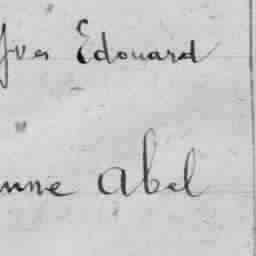 Yves Edouard
unne Abel